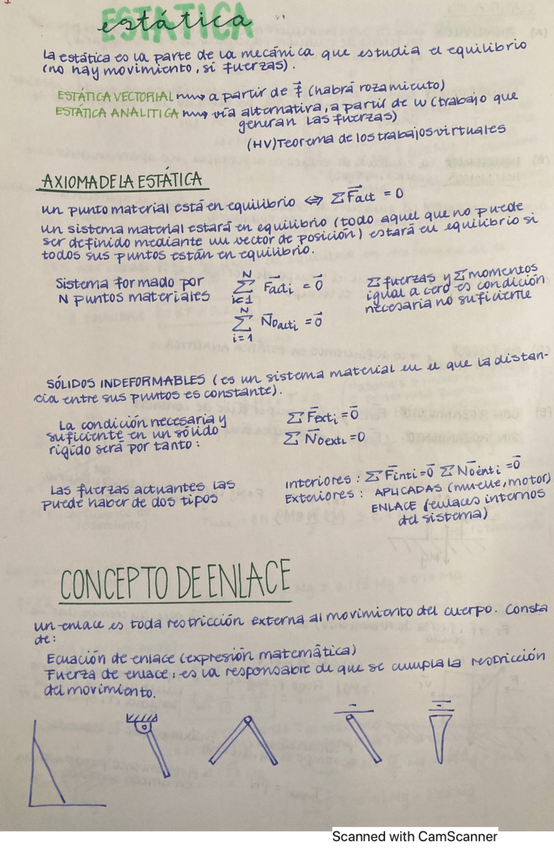 estática
La estática es la parte de la mecánica que estudia el equilibrio
(no hay movimiento, si fuerzas).
ESTÁTICA VECTORIAL → a partir de f⃗ (habrá rozamiento)
ESTÁTICA ANALITICA → vía alternativa, a partir de W (trabajo que
generan las fuerzas)
(HV) Teorema de los trabajos virtuales
AXIOMA DE LA ESTÁTICA
un punto material está en equilibrio ⇔ ΣF⃗act = 0
un sistema material estará en equilibrio (todo aquel que no puede
ser definido mediante un vector de posición) estará en equilibrio si
todos sus puntos están en equilibrio.
Sistema formado por
N puntos materiales
N
Σ F⃗acti = 0⃗
i=1
N
Σ N⃗oacti = 0⃗
i=1
Σ fuerzas y Σ momentos
igual a cero es condición
necesaria no suficiente
SÓLIDOS INDEFORMABLES (es un sistema material en el que la distan-
cia entre sus puntos es constante).
La condición necesaria y
suficiente en un sólido
rígido será por tanto:
Σ F⃗exti = 0⃗
Σ N⃗oexti = 0
Las fuerzas actuantes las
puede haber de dos tipos
Interiores: Σ F⃗inti = 0⃗ Σ N⃗ointi = 0⃗
Exteriores: APLICADAS (muelle, motor)
ENLACE (enlaces internos
del sistema)
CONCEPTO DE ENLACE
un enlace es toda restricción externa al movimiento del cuerpo. Consta
de:
Ecuación de enlace (expresión matemática)
Fuerza de enlace: es la responsable de que se cumpla la restricción
del movimiento.
Scanned with CamScanner